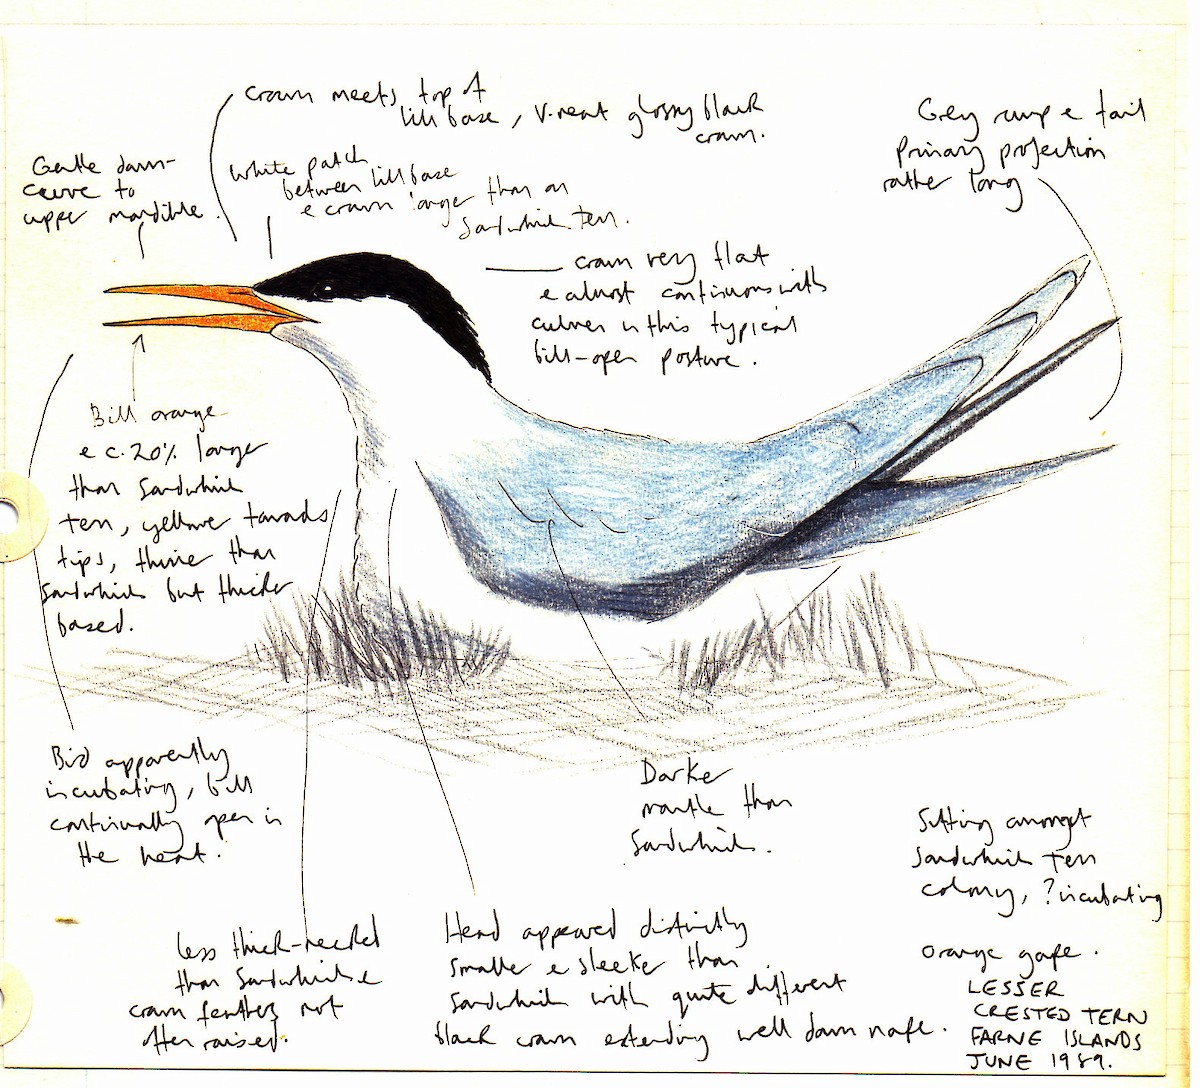 Crown meets top of
bill base, V. neat glossy black
crown.
Gentle down-
curve to
upper mandible.
White patch
between bill base
& crown larger than on
Sandwich Tern.
Grey rump & tail
Primary projection
rather long
crown very flat
& almost continuous with
culmen in this typical
bill-open posture.
Bill orange
& c.20% longer
than Sandwich
Tern, yellower towards
tips, thinner than
Sandwich but thicker
based.
Bird apparently
incubating, bill
continually open in
the heat.
Darker
mantle than
Sandwich.
Sitting amongst
Sandwich Tern
colony, ?incubating
less thick-necked
than Sandwich &
crown feathers not
often raised.
Head appeared distinctly
smaller & sleeker than
Sandwich with quite different
black crown extending well down nape.
orange gape.
LESSER
CRESTED TERN
FARNE ISLANDS
JUNE 1989.